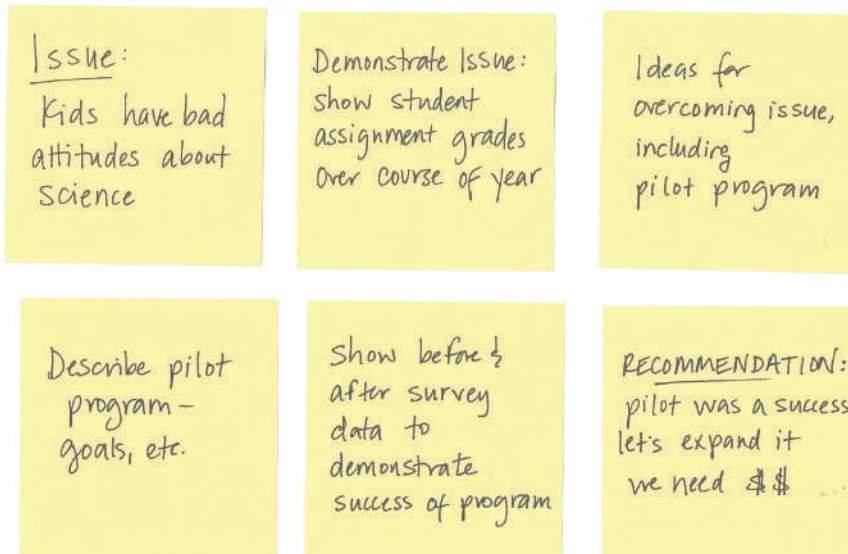 Issue:
Kids have bad
attitudes about
science
Demonstrate Issue:
show student
assignment grades
over course of year
Ideas for
overcoming issue,
including
pilot program
Describe pilot
program –
goals, etc.
Show before &
after survey
data to
demonstrate
success of program
RECOMMENDATION:
pilot was a success
let's expand it
we need $$